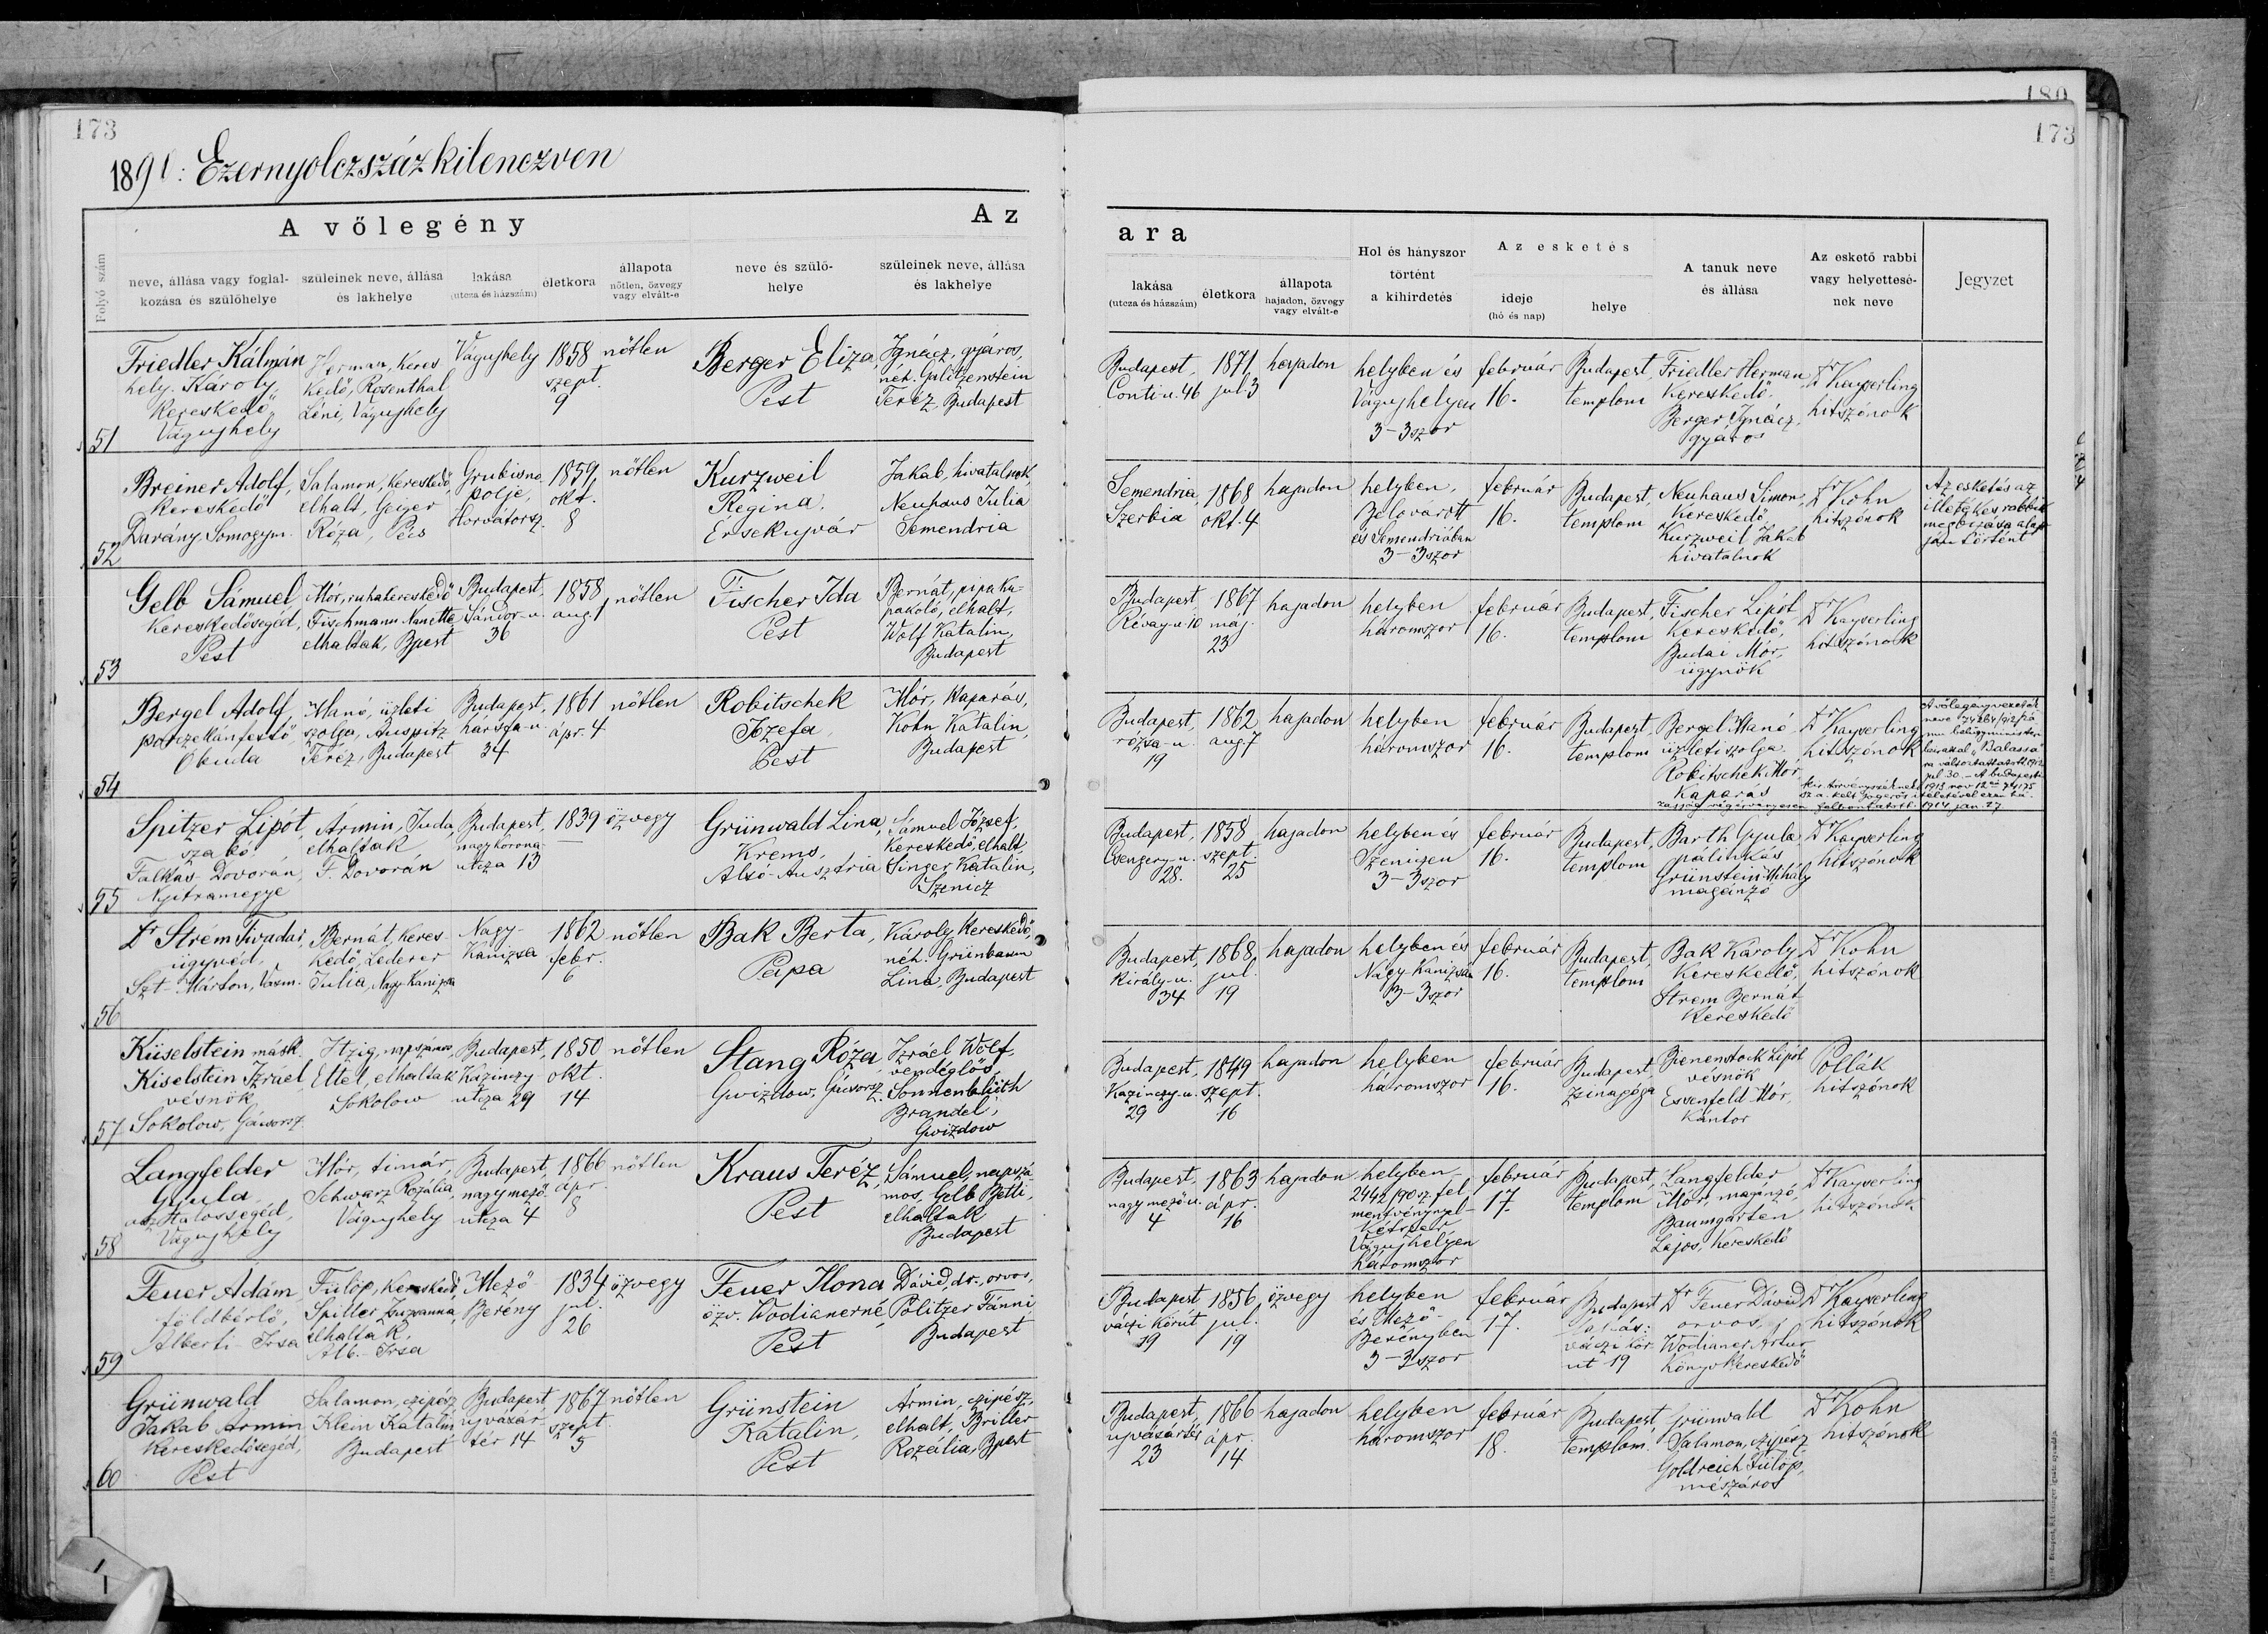 173
180
173
1890: Ezernyolczszázkilenczven
A vőlegény
Az
ara
Folyó szám
neve, állása vagy foglal-
kozása és szülőhelye
szüleinek neve, állása
és lakhelye
lakása
(utcza és házszám)
életkora
állapota
nőtlen, özvegy
vagy elvált-e
neve és szülő-
helye
szüleinek neve, állása
és lakhelye
lakása
(utcza és házszám)
életkora
állapota
hajadon, özvegy
vagy elvált-e
Hol és hányszor
történt
a kihirdetés
Az esketés
ideje
(hó és nap)
helye
A tanuk neve
és állása
Az eskető rabbi
vagy helyettesé-
nek neve
Jegyzet
51
Friedler Kálmán
hely. Károly,
kereskedő
Vágujhely
Herman, keres
kedő, Rosenthal
Léni, Vágujhely
Vágujhely
1858
szept.
9
nőtlen
Berger Eliza,
Pest
Ignácz, gyáros,
néh. Galitzenstein
Teréz, Budapest
Budapest,
Conti-u. 46
1871,
jul. 3
hajadon
helyben és
Vágujhelyen
3-3szor
február
16.
Budapest,
templom
Friedler Herman,
kereskedő,
Berger Ignácz,
gyáros
Dr Kayserling
hitszónok
52
Breiner Adolf,
kereskedő
Darány Somogym.
Salamon, kereskedő,
elhalt, Geiger
Róza, Pécs
Grubisno
polje,
Horvátorsz.
1859,
okt.
8
nőtlen
Kurzweil
Regina,
Ersekujvár
Jakab, hivatalnok,
Neuhaus Julia
Semendria
Semendria,
Szerbia
1868
okt. 4
hajadon
helyben,
Belovárott
és Semendriában
3-3szor
február
16.
Budapest,
templom
Neuhaus Simon,
kereskedő,
Kurzweil Jakab
hivatalnok
Dr Kohn
hitszónok
Az esketés az
illetékes rabbik
megbizása alap
ján történt
53
Gelb Sámuel
kereskedősegéd,
Pest
Mór, ruhakereskedő
Fischmann Nanette,
elhaltak, Bpest
Budapest,
Sándor-u.
36
1858
aug. 1
nőtlen
Fischer Ida
Pest
Bernát, pipaku-
pakoló, elhalt,
Wolf Katalin,
Budapest
Budapest,
Révay-u. 10
1867
máj.
23
hajadon
helyben
háromszor
február
16.
Budapest,
templom
Fischer Lipót
kereskedő,
Budai Mór,
ügynök
Dr Kayserling
hitszónok
54
Bergel Adolf
porczellánfestő,
Óbuda
Manó, üzleti
szolga, Auspitz
Teréz, Budapest
Budapest,
hársfa-u.
34
1861
ápr. 4
nőtlen
Robitschek
Jozefa,
Pest
Mór, kaparás,
Kohn Katalin,
Budapest
Budapest,
rózsa-u.
19
1862
aug. 7
hajadon
helyben
háromszor
február
16.
Budapest,
templom
Bergel Manó
üzletiszolga,
Robitschek Mór,
kaparás
Dr Kayserling
hitszónok
A vőlegény vezeték
neve 74264/912 szá
mu belügyminister
leirattal "Balassá"
ra változtattatott 1912
jul 30. - A budapesti
kir törvényszéknek 1913 nov 12-én 74175
sz a. kelt jogerős itéletével ezen há-
zasság végérvényesen felbontatott. 1914 jan 27
55
Spitzer Lipót,
szabó,
Falkas-Dovorán,
Nyitramegye
Ármin, Juda,
elhaltak
F. Dovorán
Budapest,
nagykorona-
utcza 13
1839
-
özvegy
Grünwald Lina,
Krems,
Alsó-Ausztria
Sámuel József,
kereskedő, elhalt,
Singer Katalin,
Szenicz
Budapest,
Csengery-u.
28.
1858
szept.
25
hajadon
helyben és
Szeniczen
3-3szor
február
16.
Budapest,
templom
Barth Gyula,
pálinkás
Grünstein Mihály
magánzó
Dr Kayserling
hitszónok
56
Dr Strém Tivadar,
ügyvéd,
Szt-Márton, Vasm.
Bernát, keres
kedő, Lederer
Julia, Nagy Kanizsa
Nagy-
Kanizsa
1862
febr.
6
nőtlen
Bak Berta,
Pápa
Károly, kereskedő,
néh. Grünbaum
Lina, Budapest
Budapest,
király-u.
34
1868,
jul.
19
hajadon
helyben és
Nagy-Kanizsán
3-3szor
február
16.
Budapest,
templom
Bak Károly
kereskedő,
Strem Bernát
kereskedő
Dr Kohn
hitszónok
57
Küselstein másk.
Kiselstein Izráel
vésnök
Sokolow, Gácsorsz.
Itzig, napszámos,
Ettel, elhaltak
Sokolow
Budapest,
Kazinczy-
utcza 29
1850
okt.
14
nőtlen
Stang Róza,
Gwizdow, Gácsorsz.
Izráel Wolf,
vendéglős,
Sonnenblüth
Brandel,
Gwizdow
Budapest,
Kazinczy-u.
29
1849
szept.
16
hajadon
helyben
háromszor
február
16.
Budapest,
zsinagóga
Bienenstock Lipót
vésnök
Essenfeld Mór,
kántor
Pollák
hitszónok
58
Langfelder
Gyula,
asztalossegéd,
Vágujhely
Mór, timár,
Schwarz Rozália,
Vágujhely
Budapest,
nagymező-
utcza 4
1866
ápr.
8
nőtlen
Kraus Teréz,
Pest
Sámuel, napszá-
mos, Gelb Betti,
elhaltak
Budapest
Budapest,
nagymező u.
4
1863
ápr.
16
hajadon
helyben
2442/90 sz. fel
mentvénynyel
kétszer
Vágujhelyen
háromszor
február
17.
Budapest,
templom
Langfelder
Mór, magánzó,
Baumgarten
Lajos, kereskedő
Dr Kayserling
hitszónok
59
Feuer Ádám
földbérlő,
Alberti-Irsa
Fülöp, kereskedő,
Spitzer Zsuzsanna,
elhaltak,
Alb.-Irsa
Mező-
Berény
1834
jul.
26
özvegy
Feuer Ilona
özv. Wodianerné,
Pest
Dávid, dr., orvos,
Politzer Fánni
Budapest
Budapest
váczi körút
19
1856,
jul.
19
özvegy
helyben
és Mező-
Berényben
3-3szor
február
17.
Budapest
lakás:
váczi kör
ut 19
Dr Feuer Dávid
orvos,
Wodianer Artur
könyvkereskedő
Dr Kayserling
hitszónok
60
Grünwald
Jakab Ármin
kereskedősegéd,
Pest
Salamon, czipész,
Klein Katalin
Budapest
Budapest,
ujvásár
tér 14
1867
szept.
5
nőtlen
Grünstein
Katalin,
Pest
Ármin, czipész,
elhalt, Briller
Rozália, Bpest
Budapest,
ujvásártér
23
1866
ápr.
14
hajadon
helyben
háromszor
február
18.
Budapest,
templom.
Grünwald
Salamon, czipész
Goldreich Fülöp,
mészáros
Dr Kohn
hitszónok